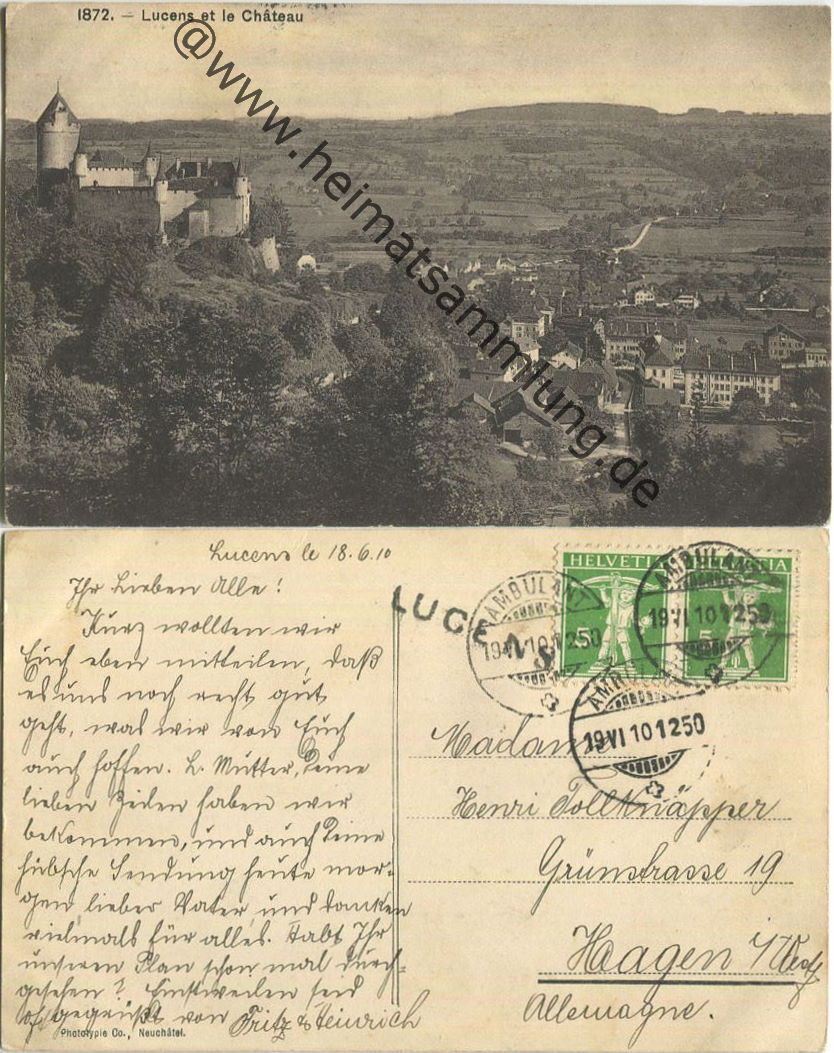 1872. — Lucens et le Château
@www.heimatsammlung.de
Lucens le 18.6.10
Ihr Lieben Alle!
Kurz wollten wir
Euch eben mitteilen, daß
es uns noch recht gut
geht, was wir von Euch
auch hoffen. L. Mutter, Deine
lieben Zeilen haben wir
bekommen, und auch Deine
hübsche Sendung heute mor-
gen lieber Vater, und danken
vielmals für alles. Habt Ihr
unseren Plan schon mal durch-
gesehen? Einstweilen seid
gegrüßt von Fritz & Heinrich
Phototypie Co., Neuchâtel.
LUCENS
HELVETIA
5
HELVETIA
5
AMBULANT
19 VI 10 1250
AMBULANT
19 VI 10 1250
AMBULANT
19 VI 10 1250
Madame
Henri Tollknäpper
Grünstrasse 19
Haagen i/Westf
Allemagne.